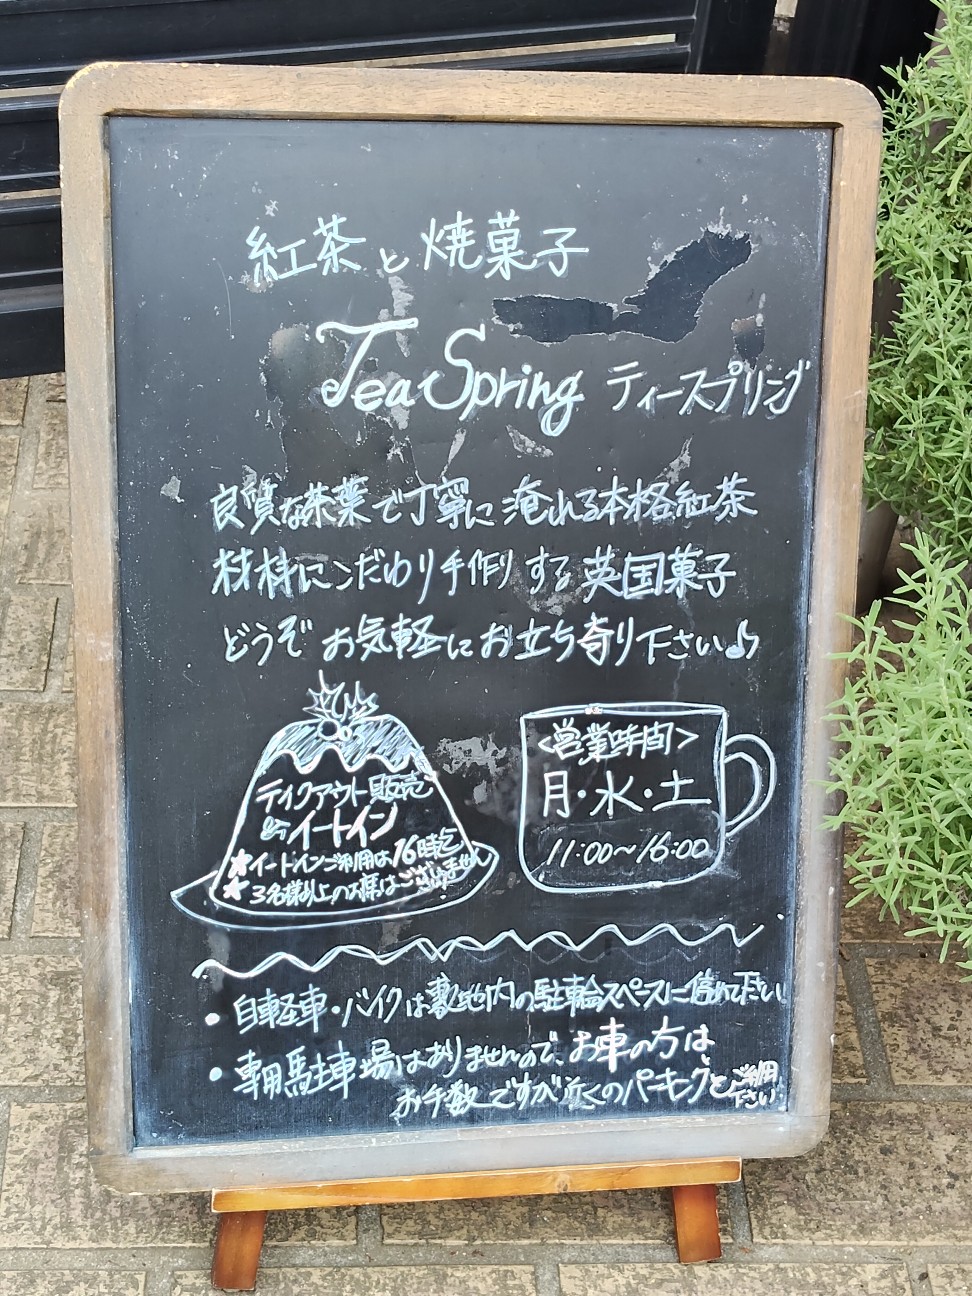 紅茶と焼菓子
Tea Spring ティースプリング
良質な茶葉で丁寧に淹れる本格紅茶
材料にこだわり手作りする英国菓子
どうぞお気軽にお立ち寄り下さい♪
テイクアウト販売
&イートイン
★イートインご利用は16時迄
★3名様以上のお席はございません
<営業時間>
月・水・土
11:00~16:00
・自転車・バイクは敷地内の駐車輪スペースに停めて下さい
・専用駐車場はありませんので、お車の方は
お手数ですが近くのパーキングをご利用下さい